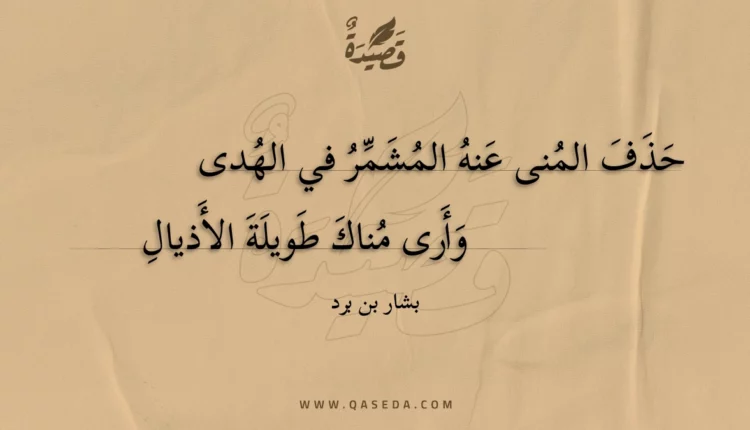 قَصِيدَةٌ
حَذَفَ المُنى عَنهُ المُشَمِّرُ في الهُدى
وَأَرى مُناكَ طَويلَةَ الأَذيالِ
بشار بن برد
WWW.QASEDA.COM